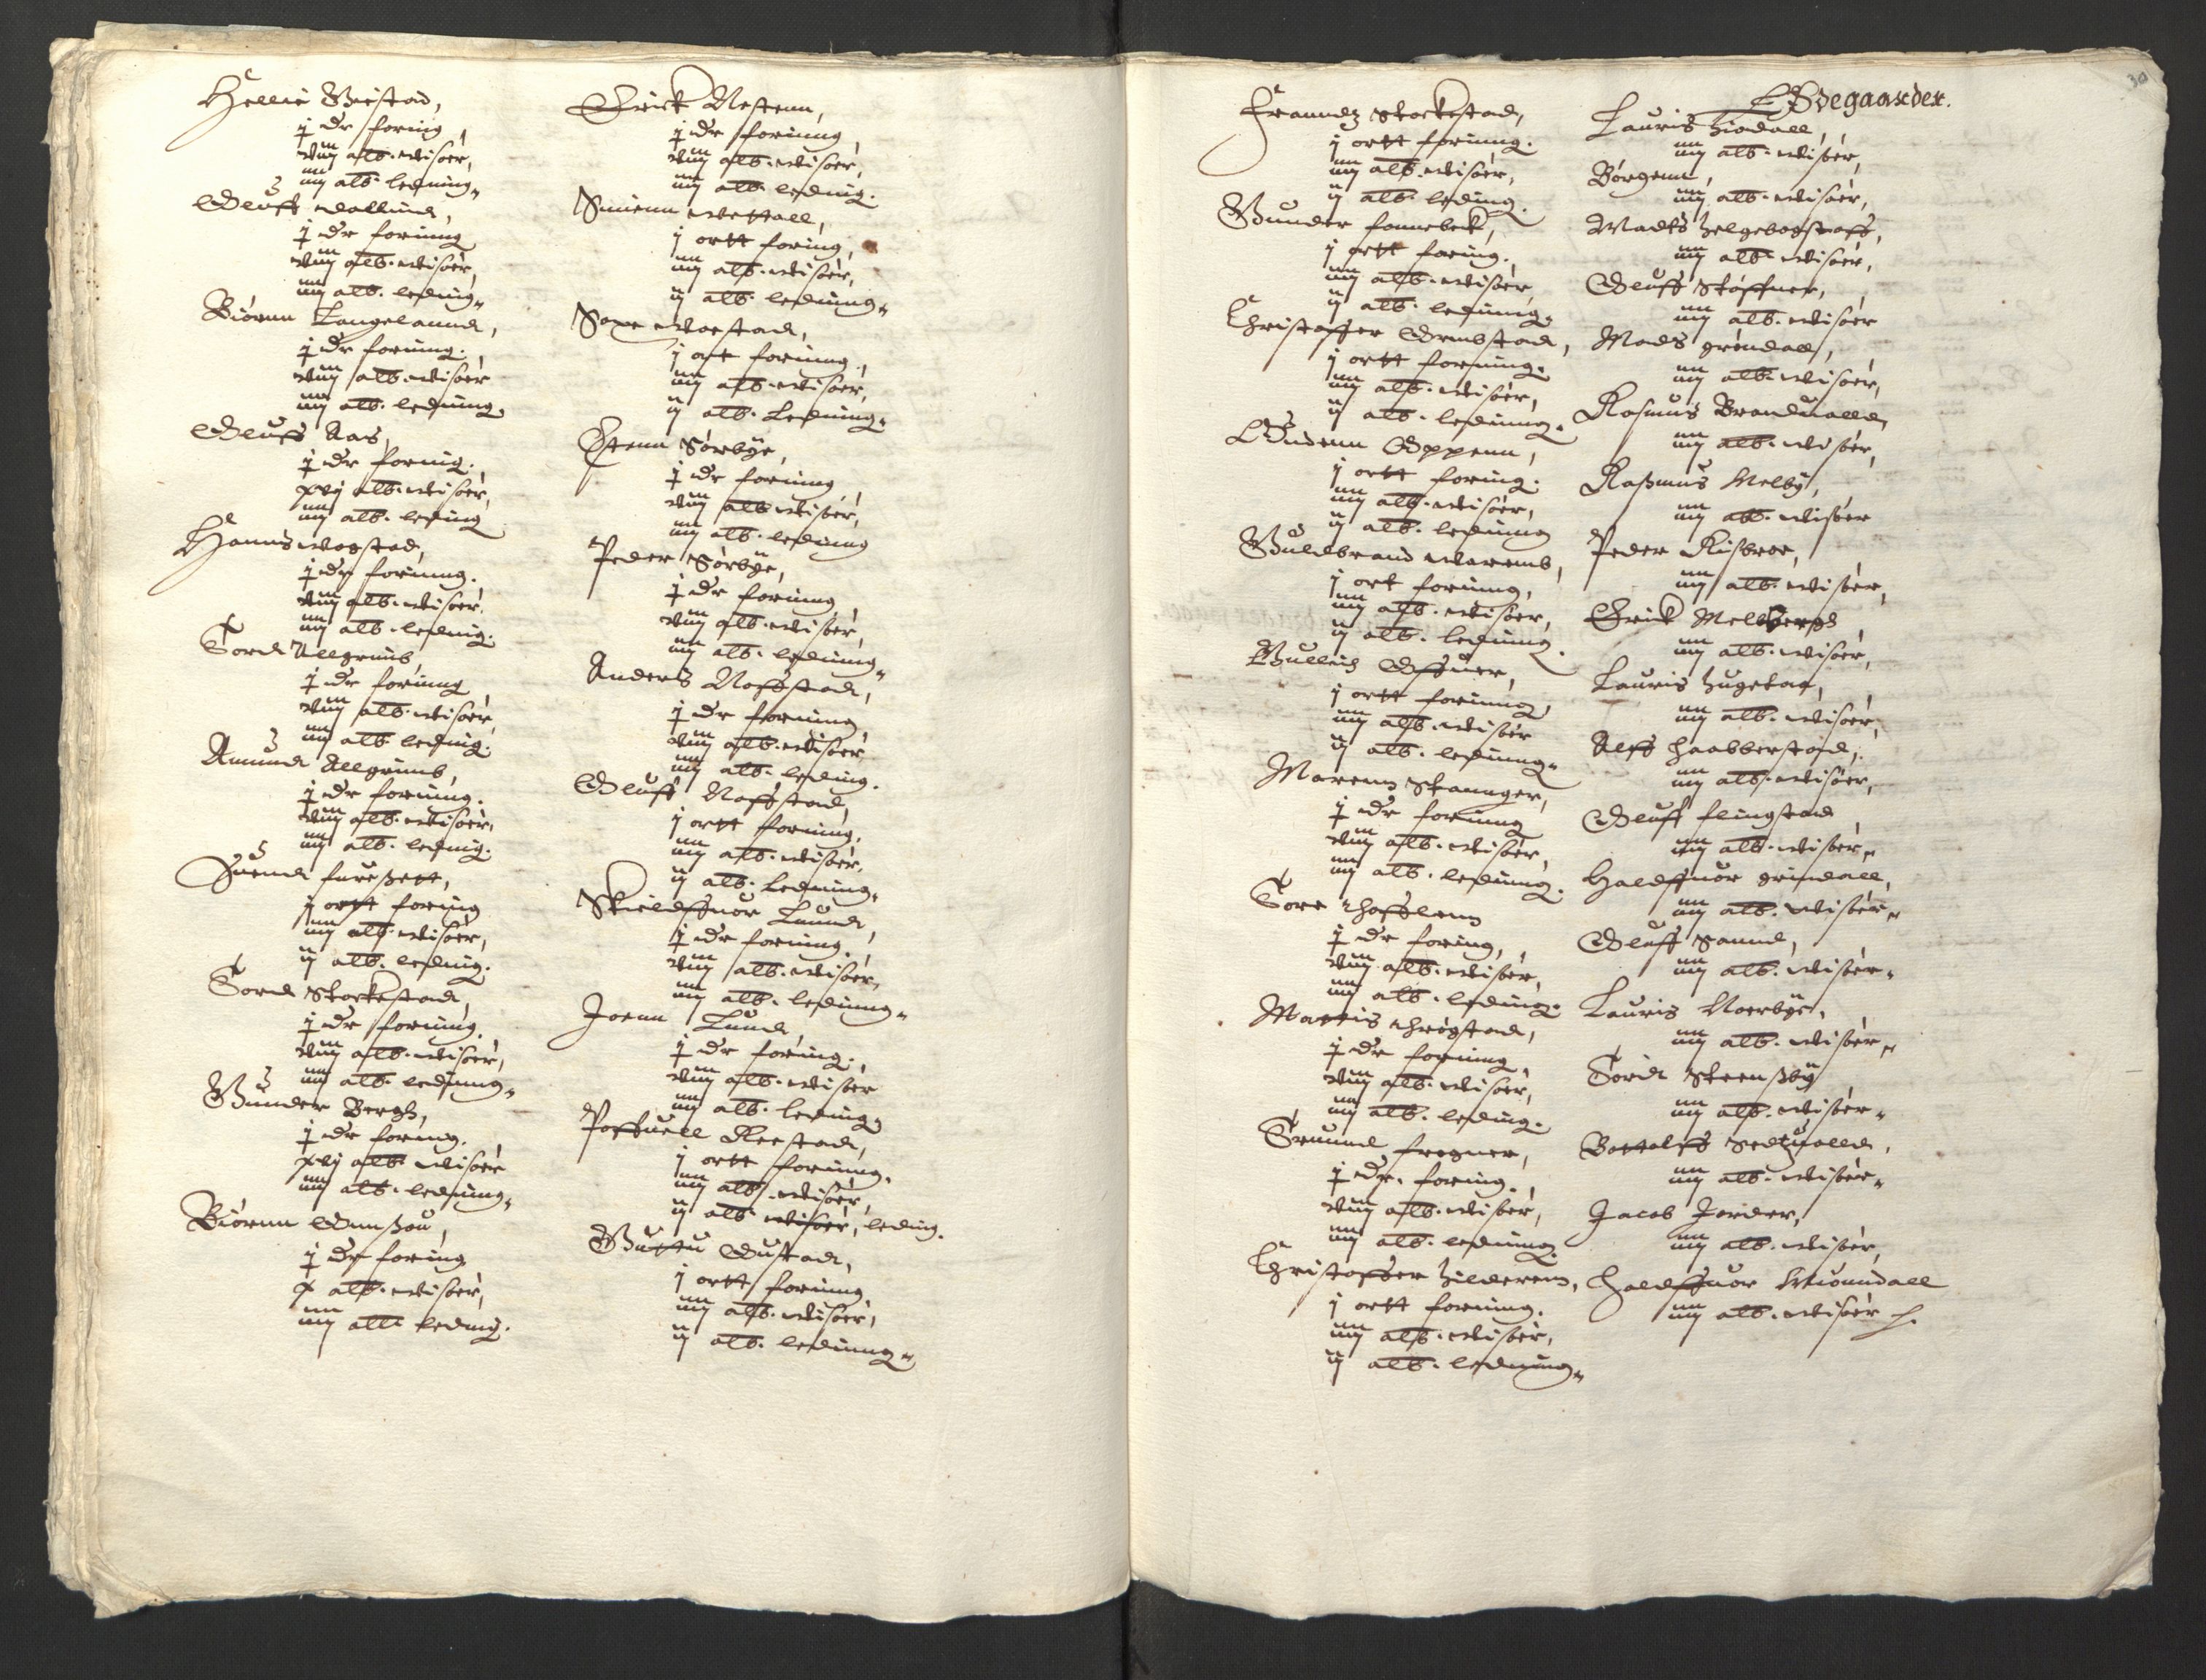 Hellie Biestad,
j dr foring,
viij alb. wisøer,
iiij alb. leding.
Oluff Wollund,
j dr foring
viij alb. wisøer,
iiij alb. leding.
Biørnn Langelannd,
j dr foring.
viij alb. wisøer
iiij alb. leding.
Oluff Aas,
j dr foring.
xvj alb. wisøer,
iiij alb. leding
Hanns Wogstad,
j dr foring.
viij alb. wisøer.
iiij alb. leding.
Tord Allgrimb,
j dr foring
viij alb. wisøer
iiij alb. leding.
Amund Allgrimb,
j dr foring.
viij alb. wisøer,
iiij alb. leding.
Suend furesett,
j ortt foring
iiij alb. wisøer,
ij alb. leding.
Tord Stockestad,
j dr foring.
viij alb. wisøer,
iiij alb. leding.
Gunder Bergh,
j dr foring.
xvj alb. wisøer
iiij alb. leding.
Biørnn
j dr foring
x alb. wisøer,
iiij alb. leding.
Erick Nestenn,
j dr foring
viij alb. wisøer,
iiij alb. leding.
Suenn Wettall,
j ortt foring,
iiij alb. wisøer,
ij alb. leding.
Soxe Woestad,
j ort foring,
iiij alb. wisøer,
ij alb. Leding.
Stenn Sørbye,
j dr foring
viij alb. wisøer,
iiij alb. leding
Peder Sørbye,
j dr foring
viij alb. wisøer,
iiij alb. leding.
Anders Noffstad,
j dr foring
viij alb. wisøer
iiij alb. leding.
Oluff Noffstad,
j ortt foring.
iiij alb. wisøer.
ij alb. Leding.
Skieldffuor Lund,
j dr foring.
viij alb. wisøer,
iiij alb. leding.
Joenn Lund,
j dr foring.
viij alb. wisøer
iiij alb. leding.
Poffuell Reestad,
j ortt foring.
iiij alb. wisøer,
ij alb. wisøer, leding.
Guttu Dustad,
j ortt foring.
iiij alb. wisøer,
ij alb. leding.
Franndz Stockestad,
j ortt foring.
iiij alb. wisøer,
ij alb. leding.
Gunder fonnebeck,
j ortt foring.
iiij alb. wisøer
ij alb. leding.
Christoffer Ormbstad,
j ortt foring.
iiij alb. wisøer,
ij alb. leding.
Eudenn Oppenn,
j ortt foring.
iiij alb. wisøer,
ij alb. leding
Guldbrand Waremb,
j ort foring,
iiij alb. wisøer,
ij alb. leding.
Gulleich Offuer,
j ortt foring,
iiij alb. wisøer
ij alb. leding.
Marenn Skannger,
j dr foring
viij alb. wisøer,
iiij alb. leding.
Tore
j dr foring,
viij alb. wisøer,
iiij alb. leding.
Mattis Thrøgstad,
j dr foring,
viij alb. wisøer,
iiij alb. leding.
Trund Frogner,
j dr. foring.
viij alb. wisøer,
iiij alb. leding.
Christoffer hilderenn,
j ortt foring.
iiij alb. wisøer,
ij alb. leding.
30
Ødegaarder.
Lauris hiodall,
iiij alb. wisøer,
Børgenn,
iiij alb. wisøer,
Madts helgebostrøff,
iiij alb. wisøer,
Oluff Støffner,
iiij alb. wisøer
Mads grøndall,
iiij alb. wisøer,
Rasmus Brandualld
iiij alb. wisøer,
Rasmus Melby,
iiij alb. wisøer
Peder Risbroe,
iiij alb. wisøer,
Erick Melbbergh
iiij alb. wisøer,
Lauris hugetag,
iiij alb. wisøer,
Alff haabberstad,
iiij alb. wisøer,
Oluff flingstad
iiij alb. wisøer,
Haldffuor grindall,
iiij alb. wisøer,
Oluff Sannd,
iiij alb. wisøer.
Lauris Noerbye,
iiij alb. wisøer,
Tord Steensby
iiij alb. wisøer.
Bottolff Sedtzualld,
iiij alb. wisøer.
Jacob Jorder,
iiij alb. wisøer,
Haldffuor Muondall
iiij alb. wisøer